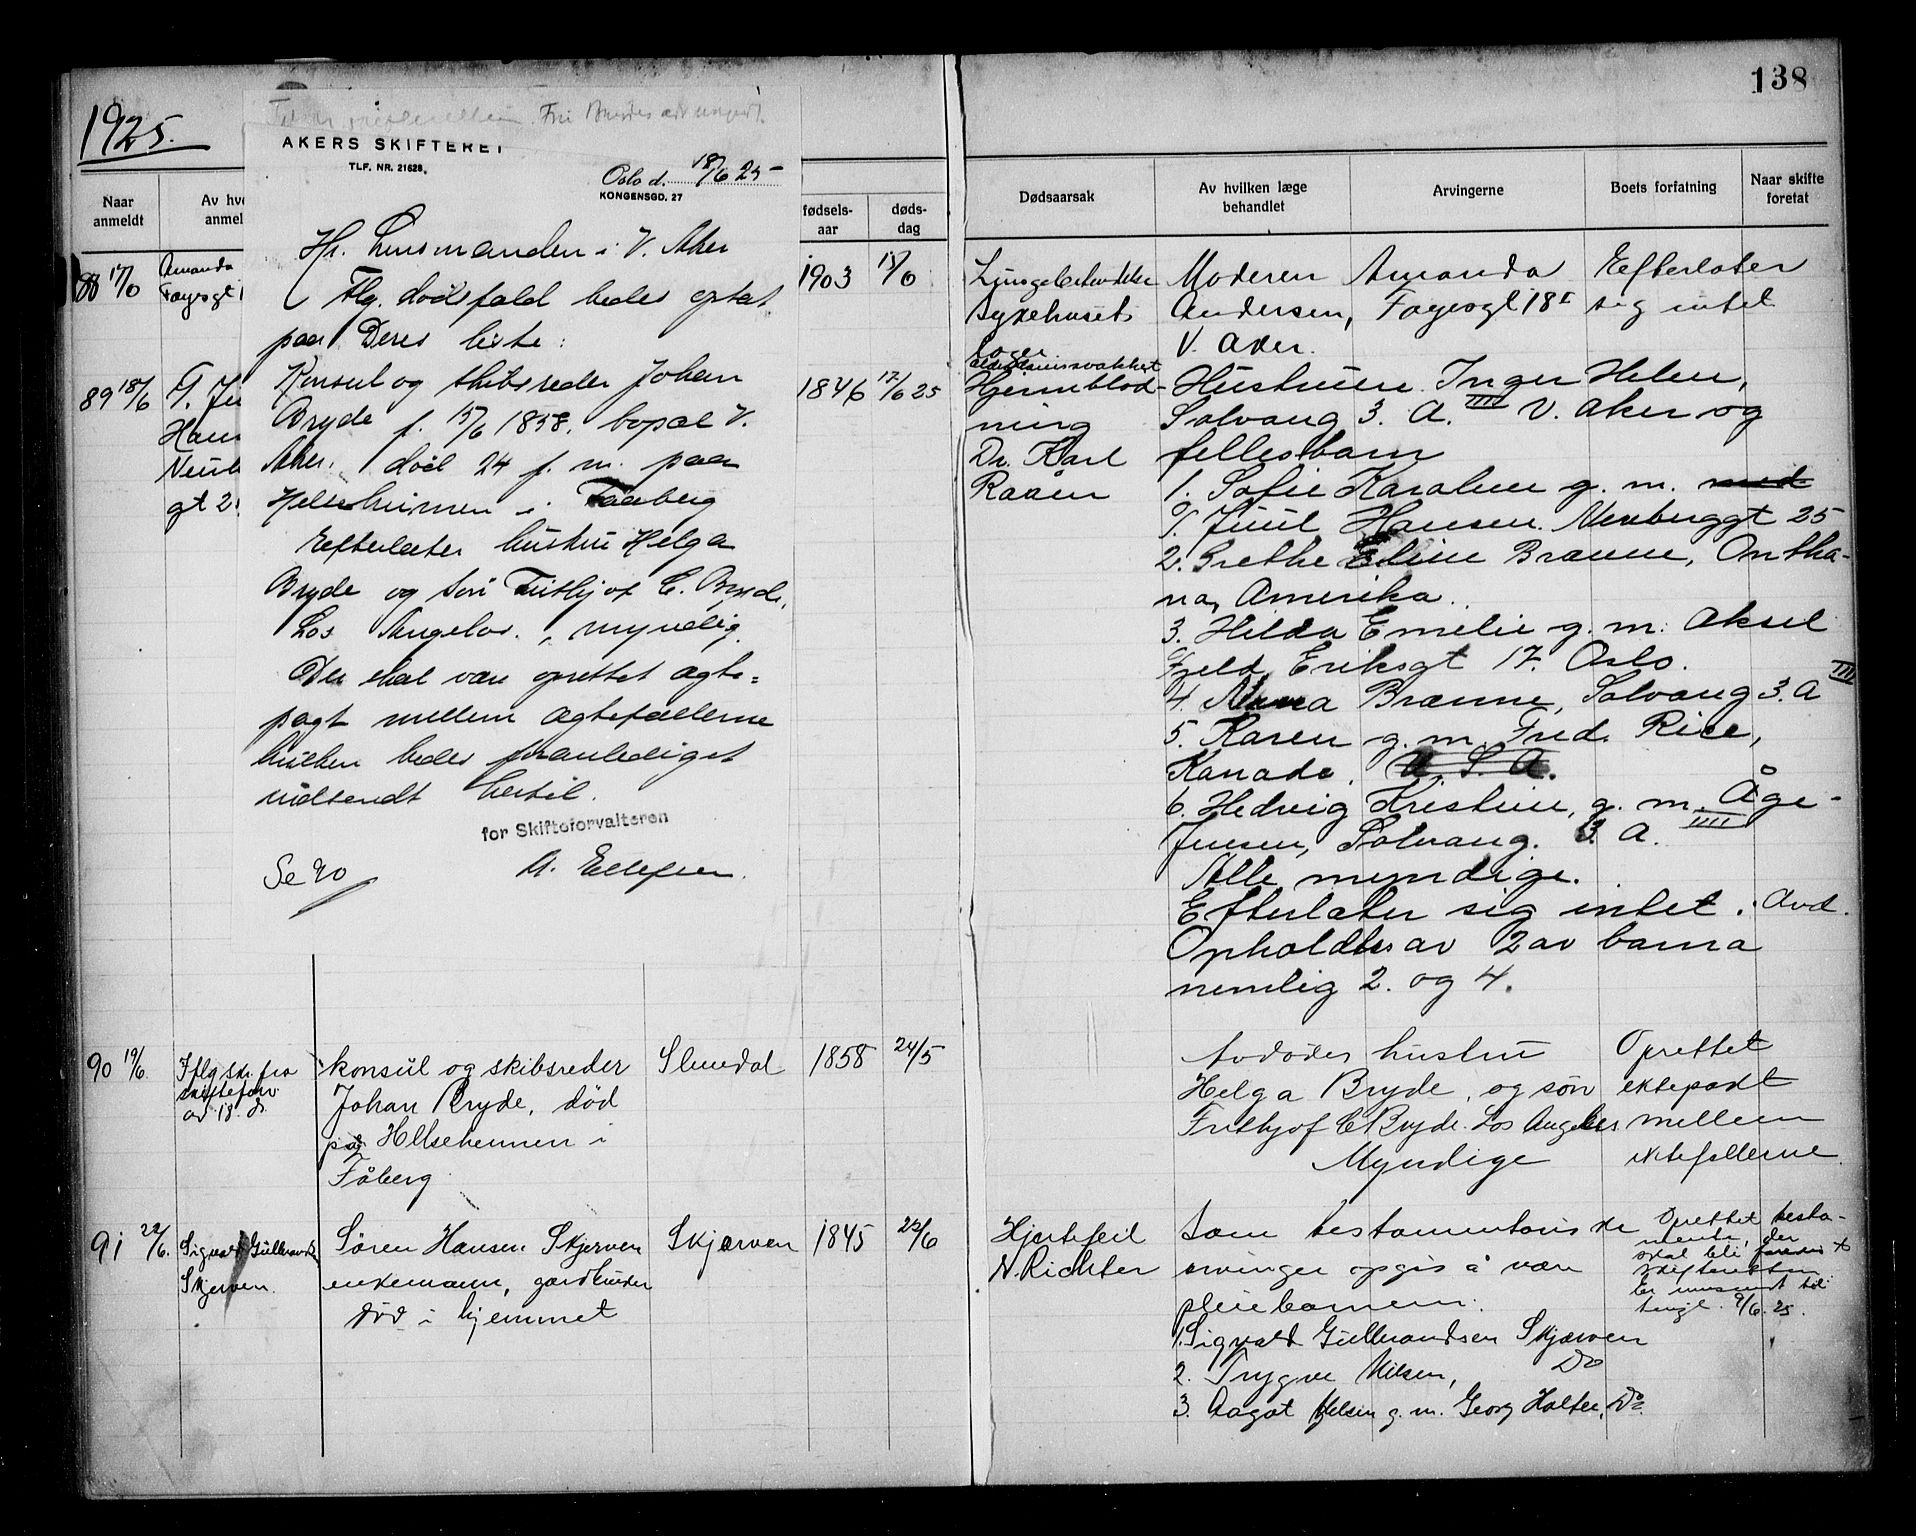 1925.
138
AKERS SKIFTERET
TLF. NR. 21628.
Oslo d. 18/6 25
KONGENSGD. 27
Hr. Lensmanden i V. Aker
Flg. dødsfald bedes optat
paa Deres liste:
Konsul og skibsreder Johan
Bryde f. 15/6 1858. bopæl V.
Aker. død 24 f. m. paa
Helseheimen i Faaberg
Efterlater hustru Helga
Bryde og søn Frithjof C. Bryde,
Los Angelos, myndig.
Der skal være oprettet ægte=
pagt mellem ægtefællerne
hvilken bedes foranlediget
indsendt hertil.
for Skifteforvalteren
A. Ellefsen.
Se 90
Naar
anmeldt
Av hve
anmel
fødsels-
aar
døds-
dag
Dødsaarsak
Av hvilken læge
behandlet
Arvingerne
Boets forfatning
Naar skifte
foretat
88 17/6
Amanda
Fagesgt 1
1903
15/6
Sykehusets
Moderen Amanda
Andersen, Fagesgt 18 I
V. Aker.
Efterlater
sig intet
89 18/6
Hans
Neub
gt 2
1846
17/6 25
alderdomssvakhet
Hjerneblød-
ning
Dr. Karl
Raaen
Hustruen Inger Helen,
Solvang 3. A. IIII V. Aker og
fellesbarn
1. Sofie Karoline g. m. med
O. Juul Hansen. Neuberggt 25
2. Grethe Eline Brænne, Ontha-
na, Amerika.
3. Hilda Emelie g. m. Aksel
Fjeld, Eriksgt 17. Oslo.
4. Anna Brænne, Solvang 3. A IIII
5. Karen g. m. Fred. Rice,
Kanada. U. S. A.
6. Hedvig Kristine, g. m. Åge
Jensen, Solvang. 3 A. IIII
Alle myndige.
Efterlater sig intet. Avd.
Opholdtes av 2 av barna
nemlig 2. og 4.
90 19/6
Iflg skr. fra
skifteforv
av 18. ds.
konsul og skibsreder
Johan Bryde, død
på Helseheimen i
Fåberg
Slemdal
1858
24/5
Avdødes hustru
Helga Bryde, og søn
Frithjof C Bryde. Los Angeles
Myndige
Oprettet
ektepakt
mellem
ektefellerne
91 22/6.
Sigvald Gulbrandsen
Skjerven.
Søren Hansen Skjerven
enkemann, gårdbruker
død i hjemmet
Skjerven
1845
22/6
Hjertefeil
N. Richter
Som testamentariske
arvinger opgis å være
pleiebarnene:
1. Sigvald Gulbrandsen Skjærven
2. Trygve Nilsen, Do
3. Aagot Nilsen g. m. Georg Holter, Do.
Oprettet testa-
mente, der
skal bli
skifteretten
Er innsendt til
9/6. 25.